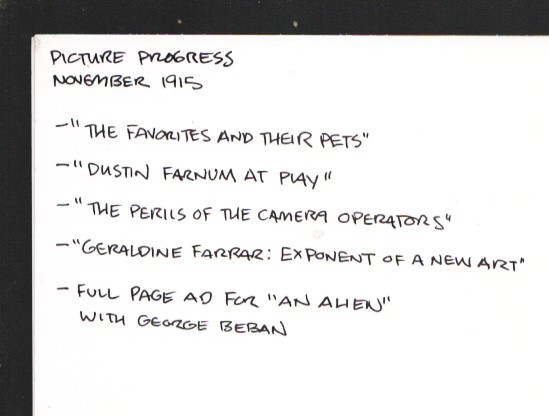 PICTURE PROGRESS
NOVEMBER 1915
- "THE FAVORITES AND THEIR PETS"
- "DUSTIN FARNUM AT PLAY"
- "THE PERILS OF THE CAMERA OPERATORS"
- "GERALDINE FARRAR: EXPONENT OF A NEW ART"
- FULL PAGE AD FOR "AN ALIEN"
WITH GEORGE BEBAN